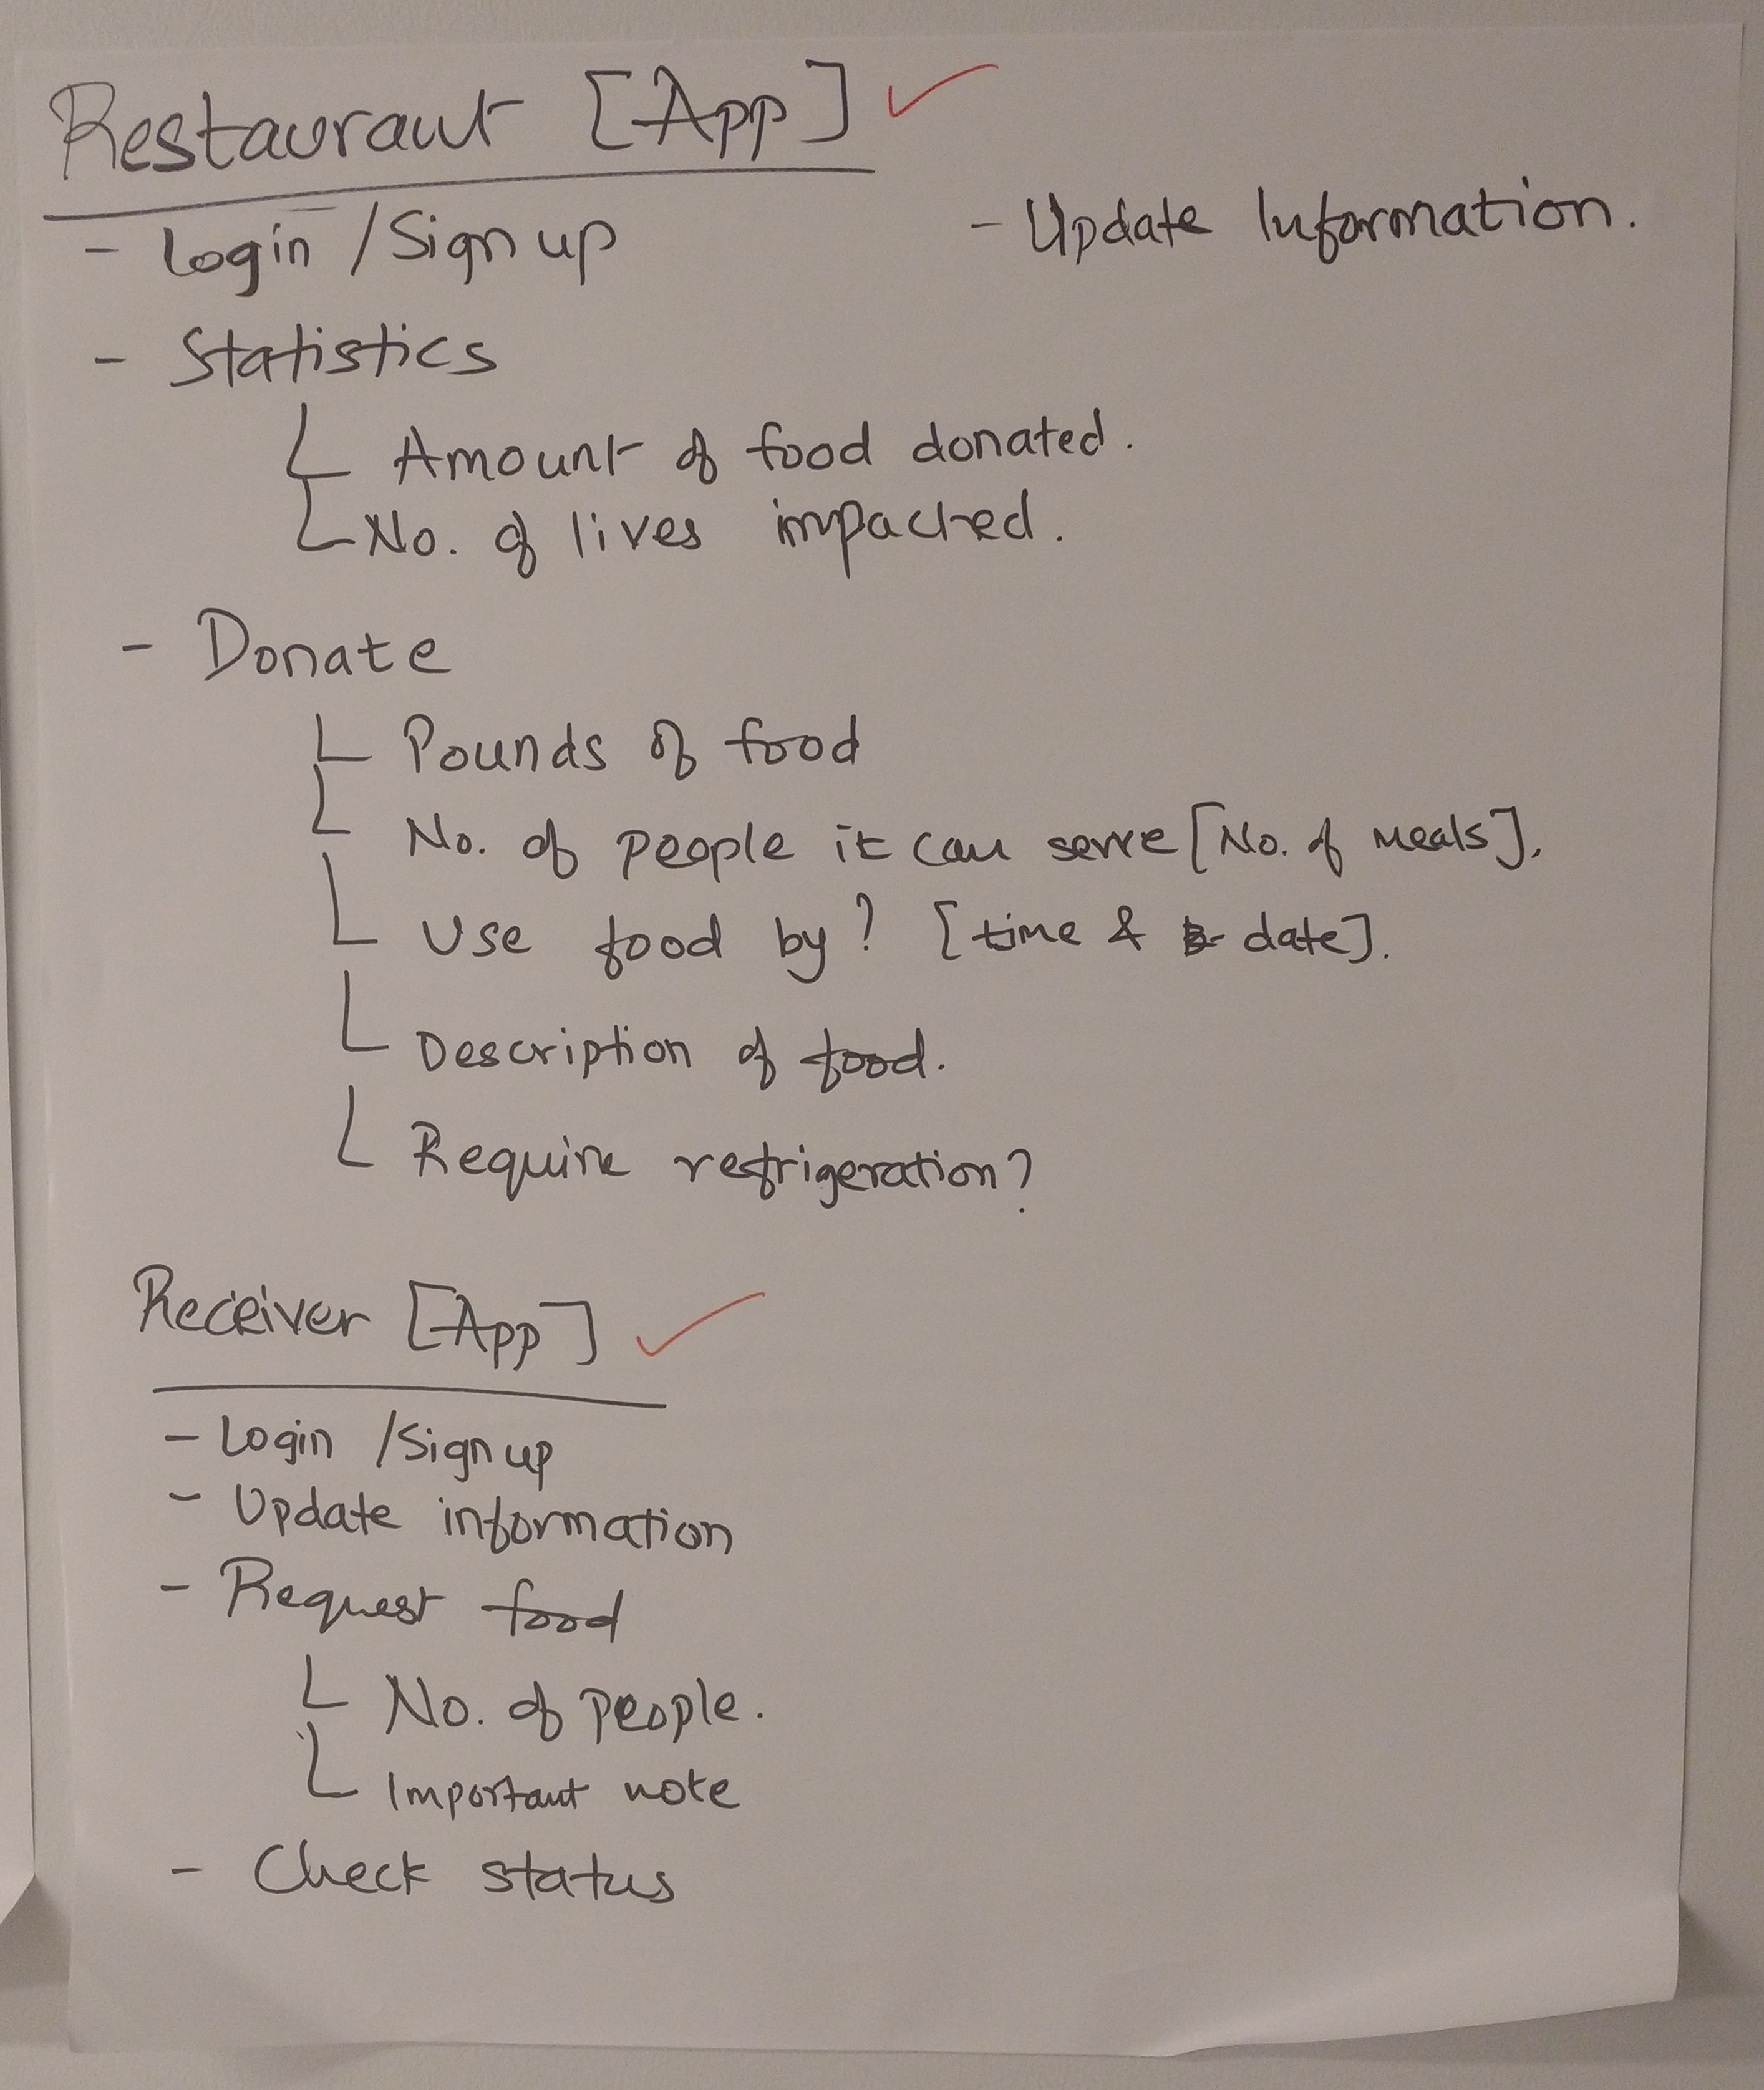 Restaurant [App] ✓
- Login / Sign up
- Update Information.
- Statistics
Amount of food donated.
No. of lives impacted.
- Donate
Pounds of food
No. of people it can serve [No. of meals].
Use food by? [time & date].
Description of food.
Require refrigeration?
Receiver [App] ✓
- Login / Sign up
- Update information
- Request food
No. of people.
Important note
- Check status